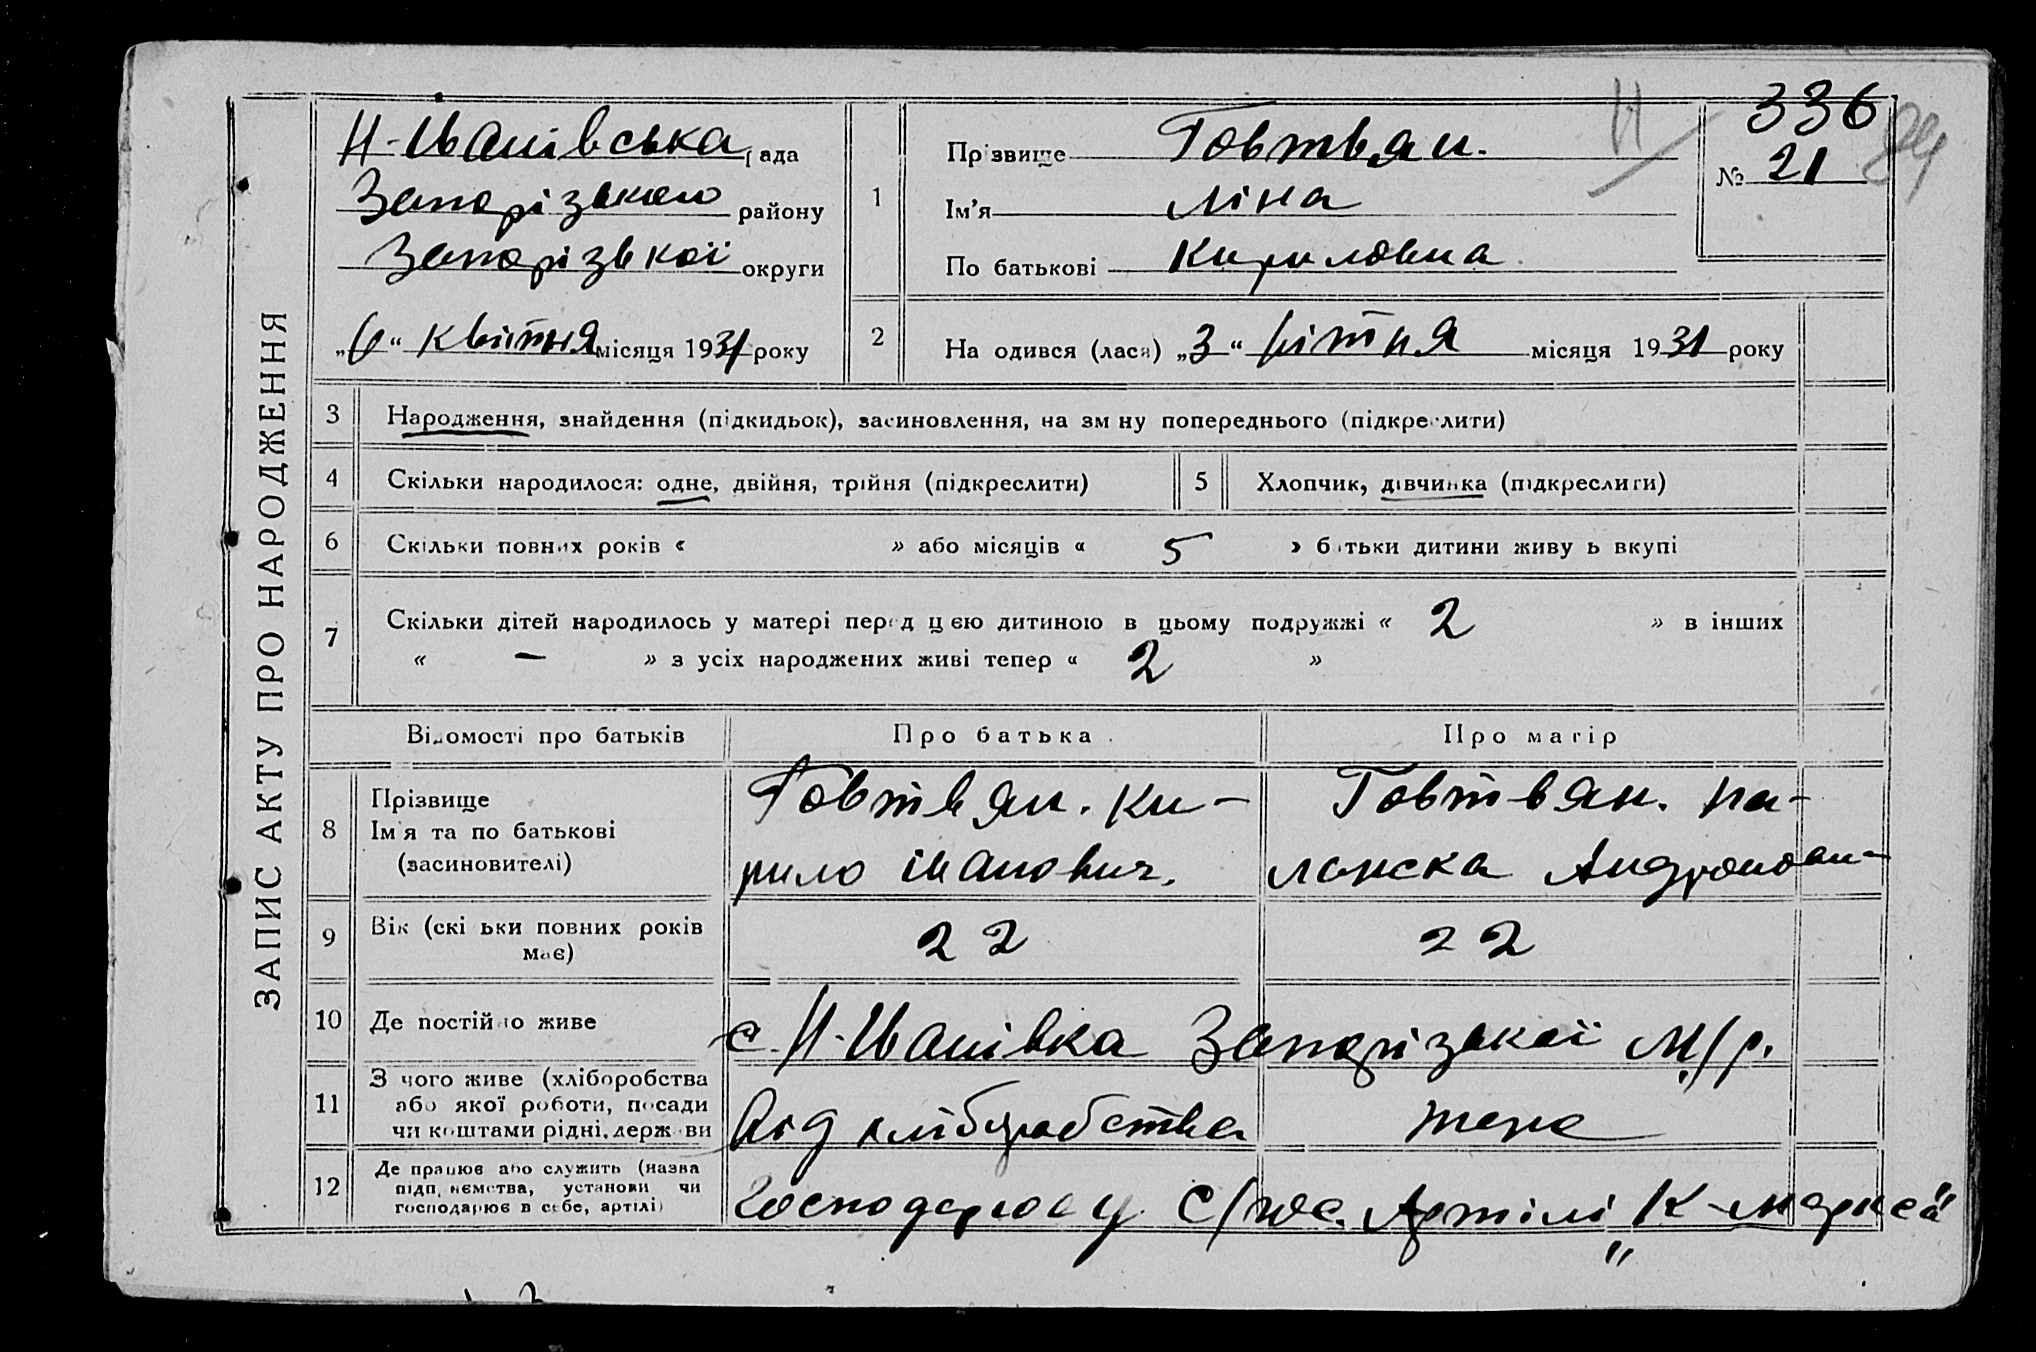 ЗАПИС АКТУ ПРО НАРОДЖЕННЯ
Н-Іванівська рада
Запорізького району
Запорізької округи
„6“ квітня місяця 1931 року
336
№ 21
1 Прізвище Говтвян.
Ім'я Ліна
По батькові Кириловна
2 На одився (лася) „3“ квітня місяця 1931 року
3 Народження, знайдення (підкидьок), засиновлення, на зм ну попереднього (підкреслити)
4 Скільки народилося: одне, двійня, трійня (підкреслити) 5 Хлопчик, дівчинка (підкреслити)
6 Скільки повних років « » або місяців « 5 » батьки дитини живу ь вкупі
7 Скільки дітей народилось у матері перед цією дитиною в цьому подружжі « 2 » в інших
« — » з усіх народжених живі тепер « 2 »
Відомості про батьків Про батька Про матір
8 Прізвище
Ім'я та по батькові
(засиновителі)
Говтвян. Ки-
рило Іванович.
Говтвян. Па-
лажка
9 Вік (скі ьки повних років
має)
22 22
10 Де постійно живе с. Н-Іванівка Запорізької М/р.
11 З чого живе (хліборобства
або якої роботи, посади
чи коштами рідні, держави
Від хліборобства жена
12 Де працює або служить (назва
підп, иємства, установи чи
господарює в себе, артілі)
Господарює у с/гос. Артілі „К-Маркса“